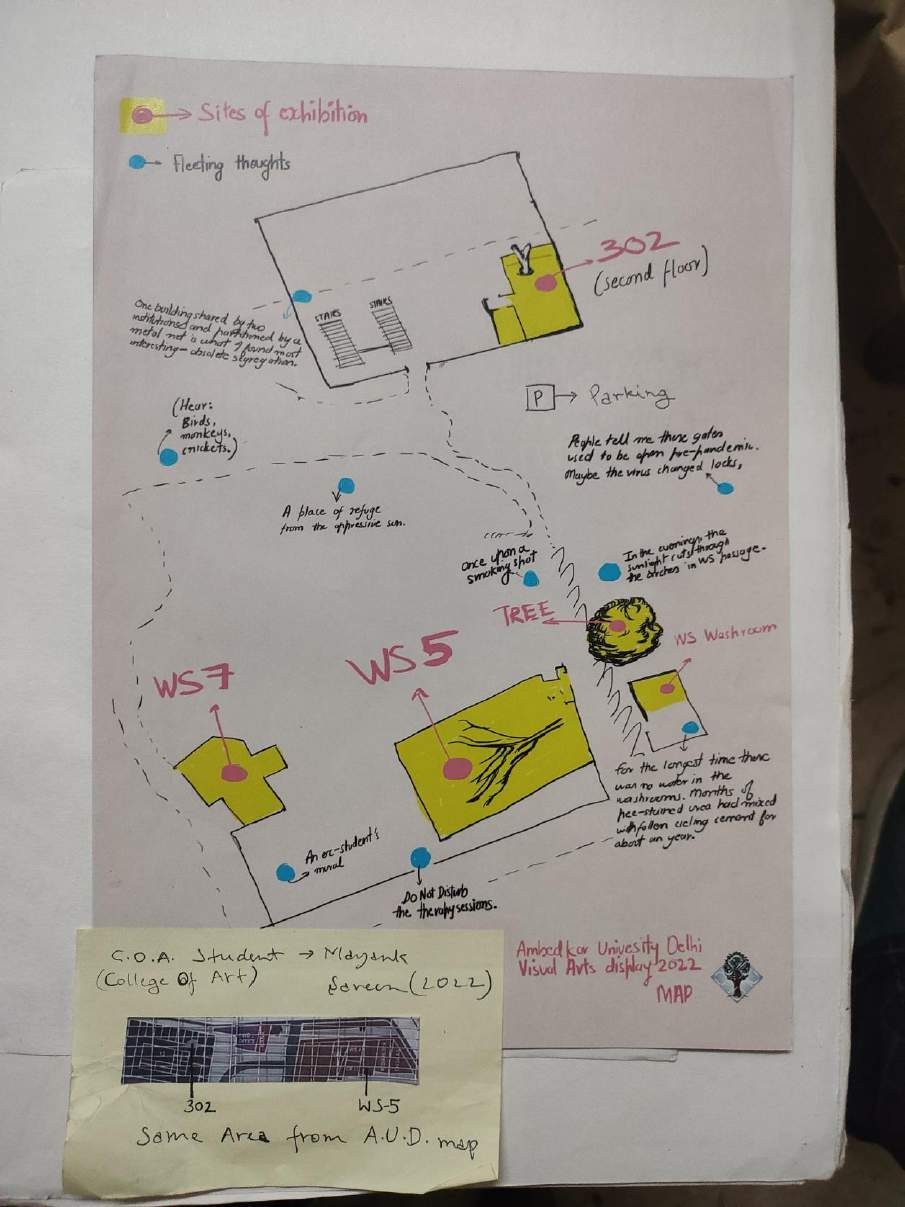 Sites of exhibition
Fleeting thoughts
302
(second floor)
STAIRS
STAIRS
One building shared by two
institutions and partitioned by a
metal net is what I found most
interesting - obsolete segregation.
P
Parking
(Hear:
Birds,
monkeys,
crickets.)
People tell me these gates
used to be open pre-pandemic.
Maybe the virus changed locks,
A place of refuge
from the oppressive sun.
once upon a
smoking spot
In the evenings, the
sunlight cuts through
the arches in WS passage.
TREE
WS Washroom
WS7
WS5
For the longest time there
was no water in the
washrooms. Months of
pee-stained area had mixed
with fallen cieling cement for
about an year.
An ex-student's
mural
Do Not Disturb
the therapy sessions.
Ambedkar Univesity Delhi
Visual Arts display 2022
MAP
C.O.A. Student → Mayank
(College Of Art)
Sareen (2022)
302
WS-5
Same Area from A.U.D. map